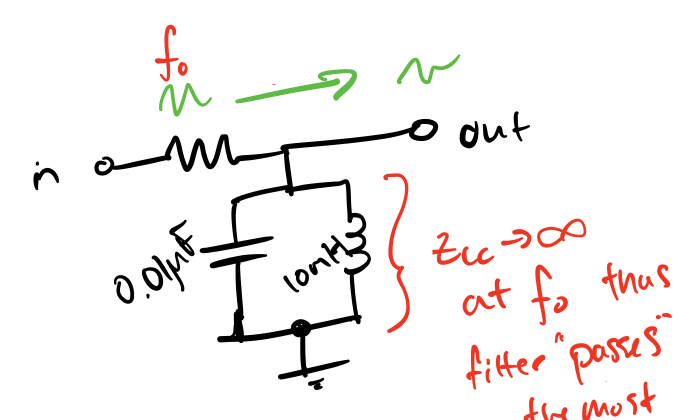 f₀
in
out
0.01μF
10mH
Z_LC → ∞
at f₀ thus
filter "passes"
the most